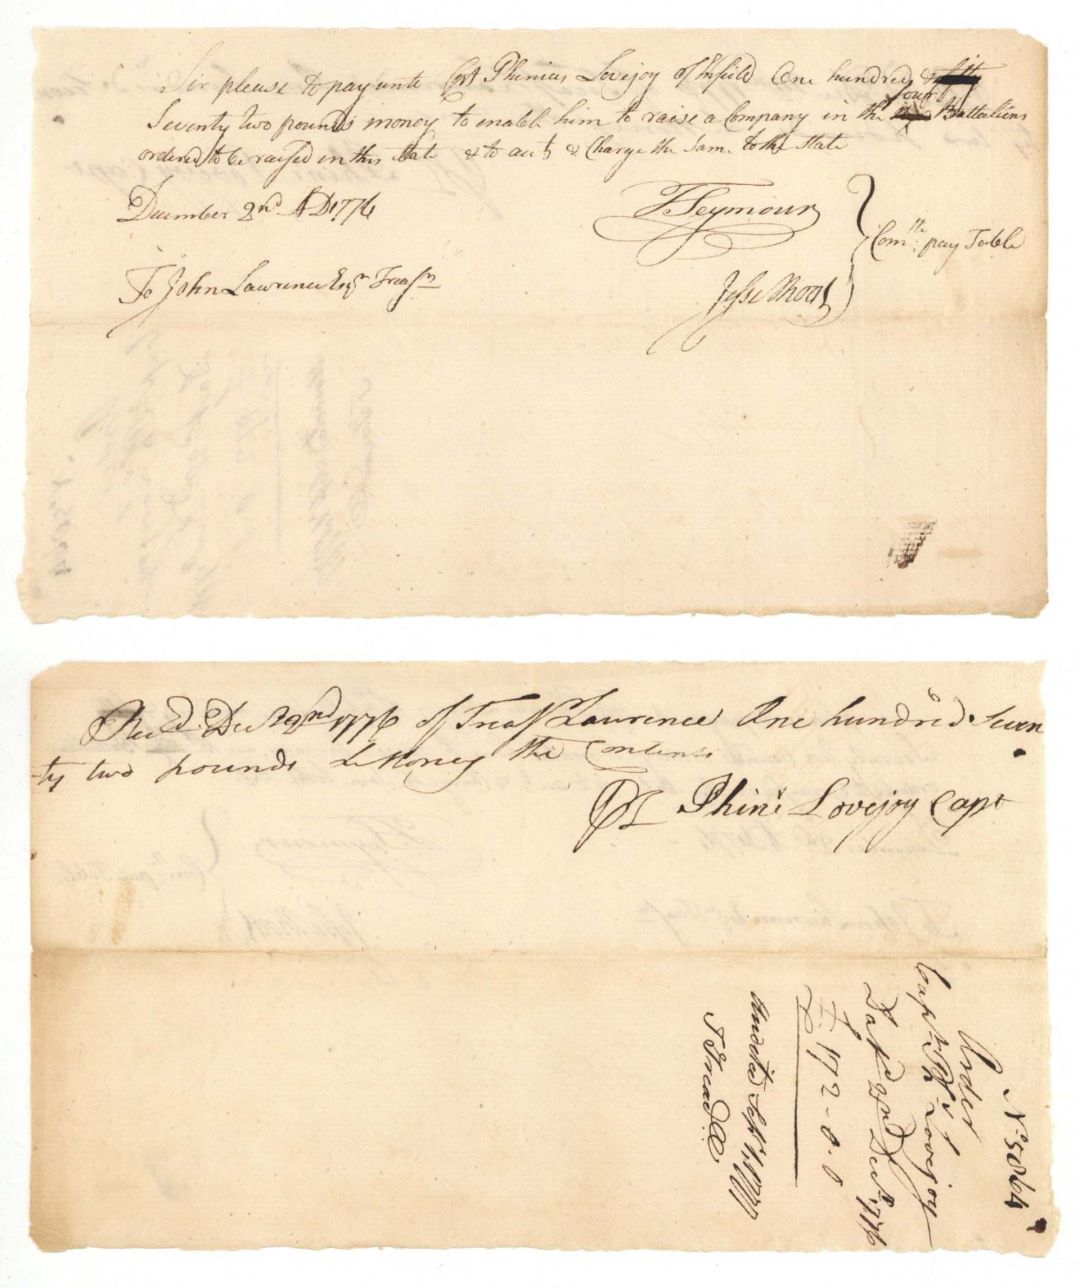 Sir please to pay unto Cpt Phinias Lovejoy of Infield One hundred &
four
Seventy two pounds money to enable him to raise a Company in the Battalions
ordered to be raised in this State & to acct & Charge the Same to the State
December 2nd AD 1776
T Seymour
Comtte pay Table
To John Lawrence Esqr Treasr
Jesse Root
Recd Decr 2nd 1776 of Treasr Lawrence One hundred Seven
ty two pounds LMoney the Contents
Pr Phins Lovejoy Capt
No 5064
Order
Capt Ph Lovejoy
Dat 2nd Decr 1776
£172-0.0
Audited Sepr 1777